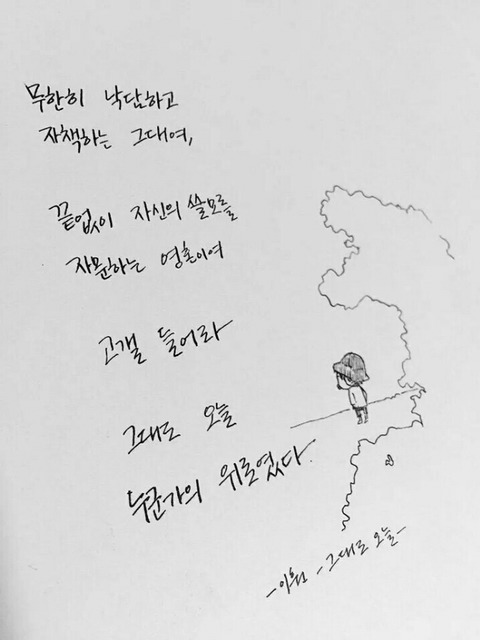 무한히 낙담하고
자책하는 그대여,
끝없이 자신의 쓸모를
자문하는 영혼이여
고갤 들어라
그대도 오늘
누군가의 위로였다.
-이훤 - 그대도 오늘-